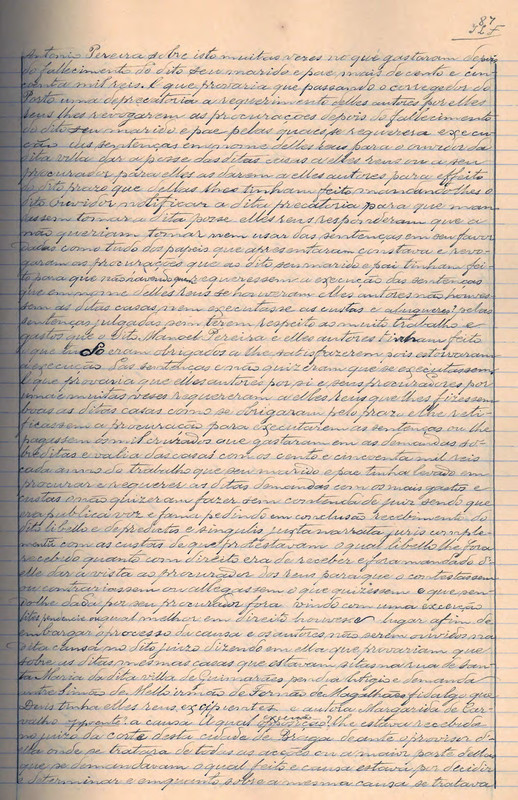 87
Antonio Pereira sobre isto muitas vezes no que gastaram depois
do fallecimento do dito seu marido e pae mais de cento e cin-
coenta mil reis. E que provaria que passando o corregedor do
Porto uma precatoria a requerimento delles autores por elles
reus lhes revogarem as procurações depois do fallecimento
do dito seu marido e pae pelas quaes se requerera execu-
ção das sentenças em nome delles reus para o ouvidor da
dita villa dar a posse das ditas casas a elles reus ou a seu
procurador para elles as darem a elles autores, para effeito
do dito prazo que dellas lhes tinham feito, mandando-lhes o
dito Ouvidor notificar a dita precatoria para que man-
dassem tomar a dita posse elles reus responderam que a
não queriam tomar nem usar das sentenças em seu favor
dadas como tudo dos papeis que apresentaram constava e revo-
garam as procurações que ao dito seu marido e pai tinham fei-
to para que não havendo quem requeressem a execução das sentenças
que em nome delles reus se houveram elles autores não houves-
sem as ditas casas nem executasse as custas e alugueres pelas
sentenças julgadas sem terem respeito ao muito trabalho e
gastos que o dito Manoel Pereira e elles autores tinham feito
E que eram obrigados a lhe satisfazerem pois estorvaram
a execução das sentenças e não quizeram que se executassem
E que provaria que elles autores por si e seus procuradores por
uma e muitas vezes requereram a elles reus que lhes fizessem
boas as ditas casas como se obrigaram pelo prazo e lhe reti-
ficassem a procuração para executarem as sentenças ou lhe
pagassem dos mil cruzados que gastaram em as demandas so-
breditas e valia das casas com os cento e cincoenta mil reis
cada anno do trabalho que seu marido e pae tinha levado em
procurar e requerer as ditas demandas com os mais gastos e
custas o não quizeram fazer sem contenda de juizo sendo que
era publica voz e fama pedindo em conclusão recebimento do
dito libello e de predictis e singulis justa narrata juris comple-
mento com as custas de que protestavam o qual libello lhe fora
recebido quanto com direito era de receber e fora mandado d'-
elle dar a vista ao procurador dos reus para que o contestassem
ou contrariassem ou allegassem o que quizessem e que sen-
do-lhe dada por seu procurador fora vindo com uma excepção
ou qual melhor em direito houvesse lugar afim de
embargar o processo da causa e os autores não serem ouvidos na
dita causa no dito juizo dizendo em ella que provariam que
sobre as ditas mesmas casas que estavam sitas na rua de San-
ta Maria da dita villa de Guimarães pendia litigio e demanda
entre Simão de Mello irmão de Fernão de Magalhães fidalgo que
Deus tinha elles reus, excipientes e autora Margarida de Car-
valho oppoente a causa E qual lhe estava recebida
no juizo da corte desta cidade de Braga deante o provisor d'-
ella onde se tratara de todas as acções ou a maior parte dellas
que se demandaram o qual feito e causa estava por decidir
e determinar e emquanto sobre a mesma causa se tratava